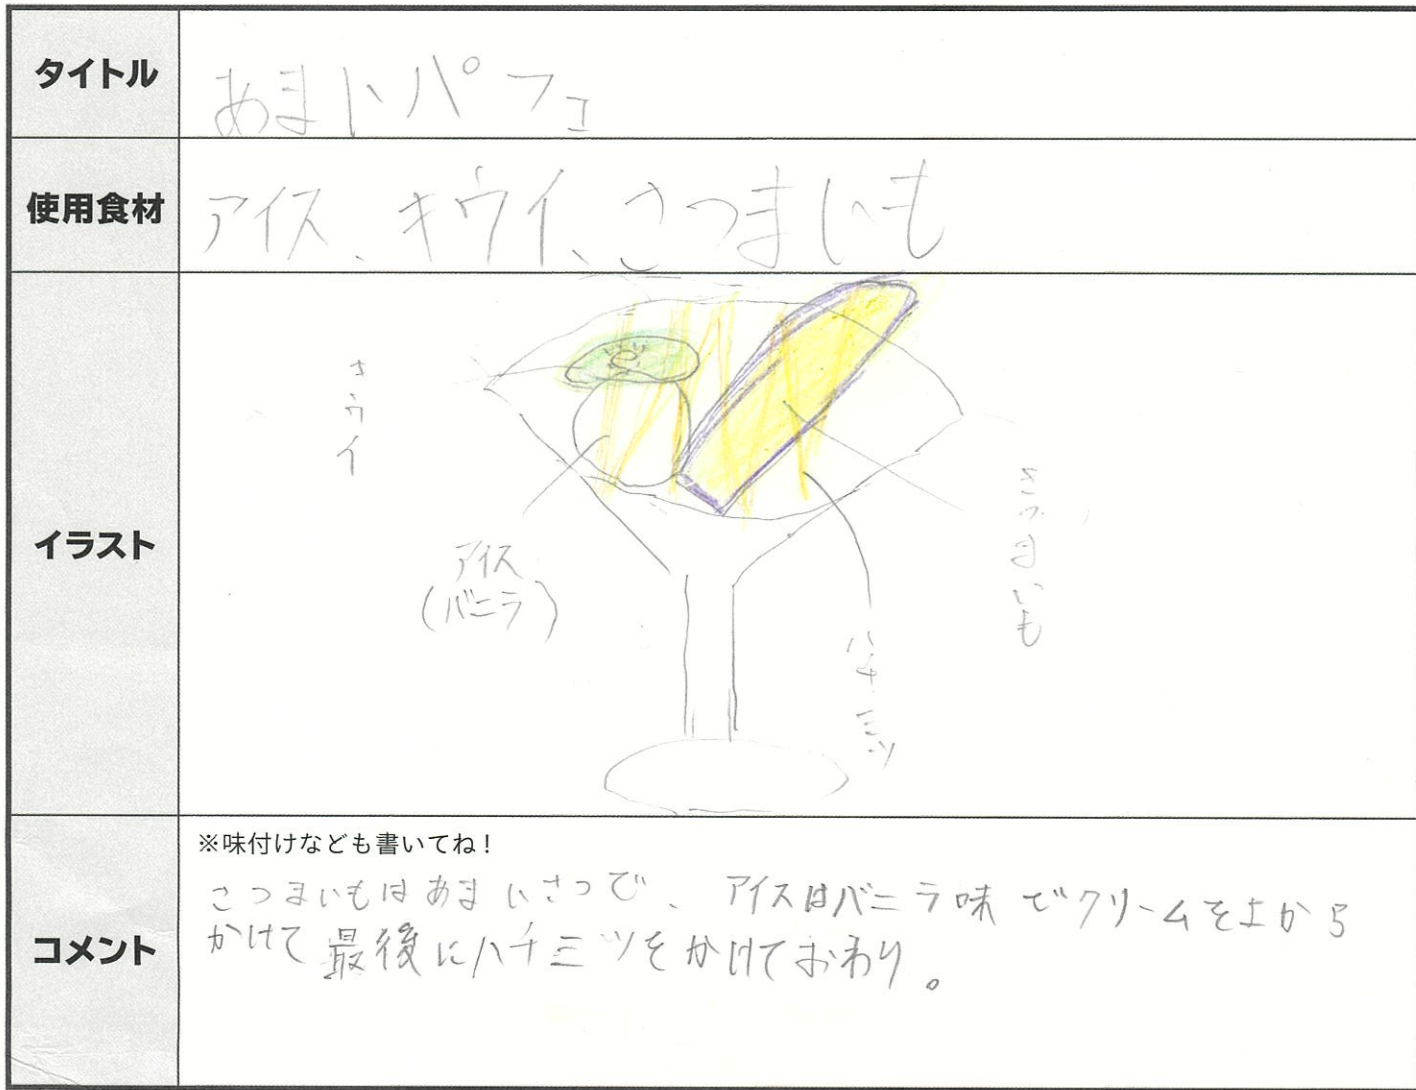 タイトル
あまいパフェ
使用食材
アイス、キウイ、さつまいも
イラスト
キウイ
アイス
(バニラ)
さつまいも
ハチミツ
コメント
※味付けなども書いてね!
さつまいもはあまいさつで、アイスはバニラ味でクリームを上から
かけて最後にハチミツをかけておわり。